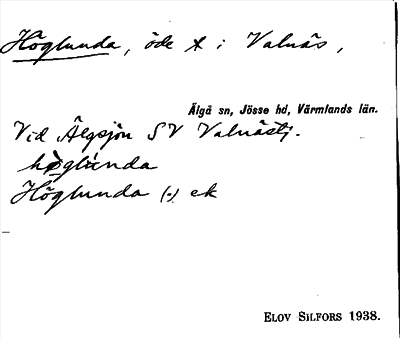 Höglunda, öde t i Valnäs,
Älgå sn, Jösse hd, Värmlands län.
Vid Älgsjön SV Valnäs
höglunda
Höglunda (-) ek
ELOV SILFORS 1938.